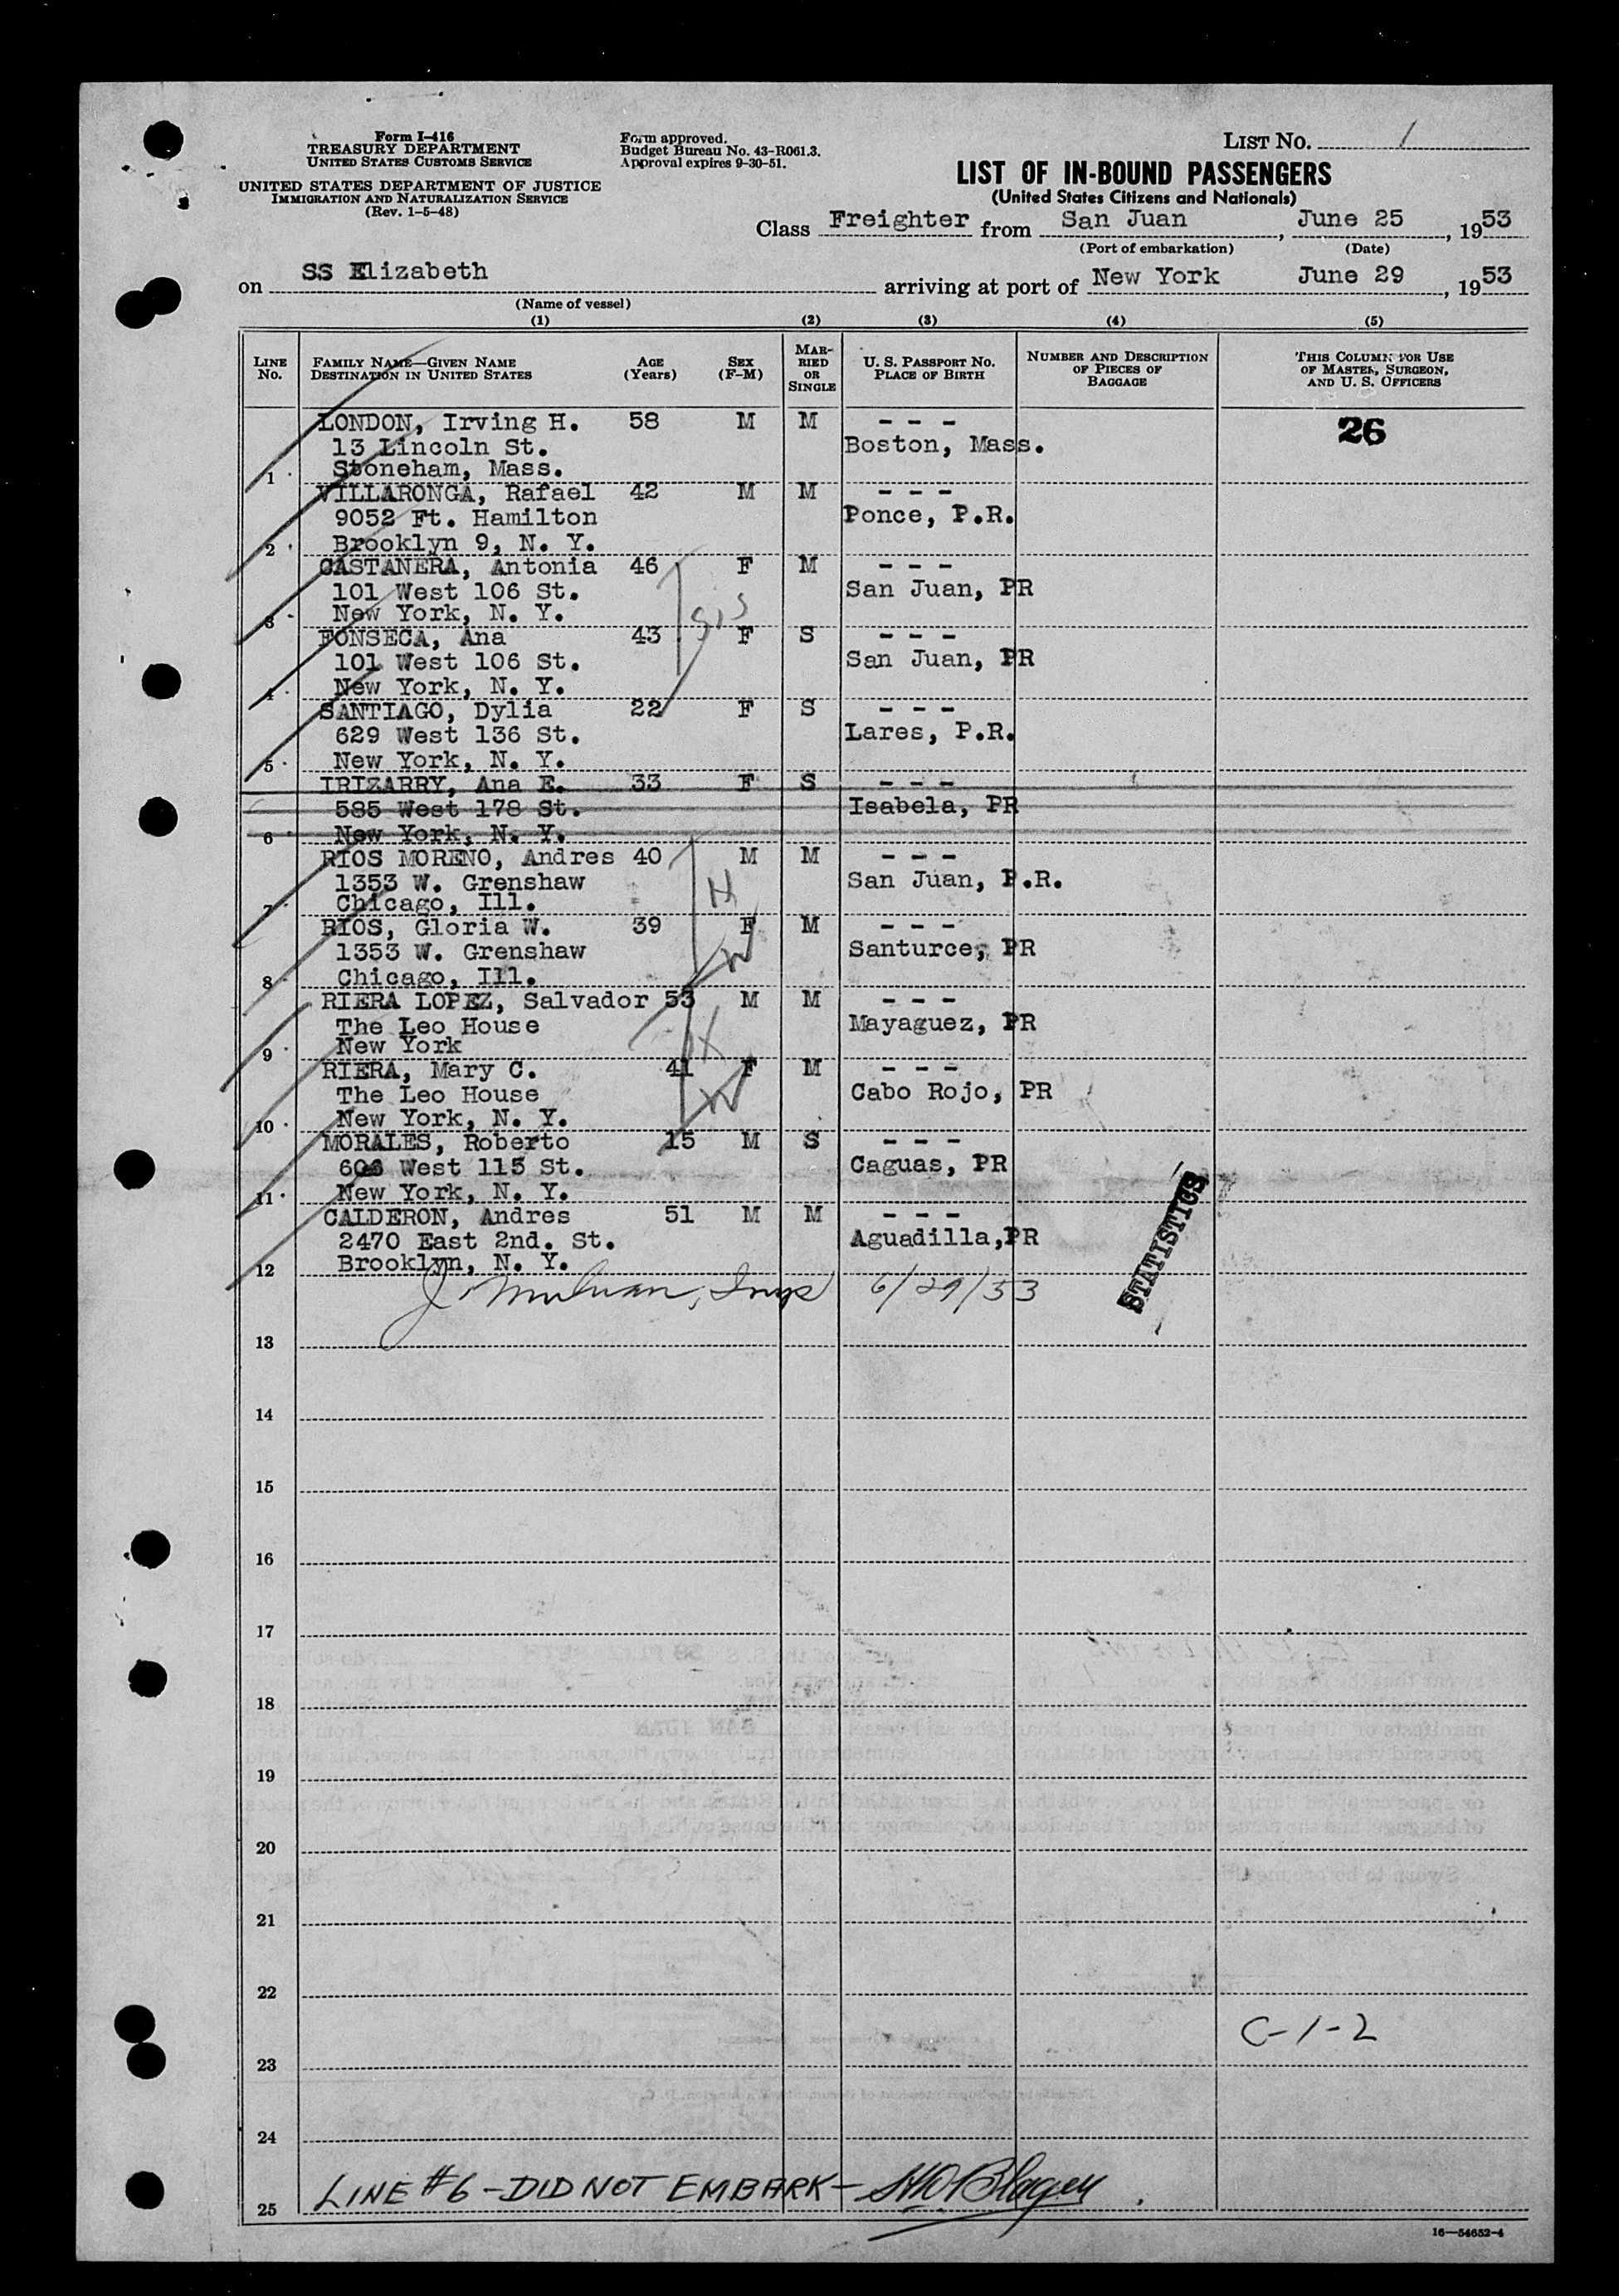 Form I-416
TREASURY DEPARTMENT
UNITED STATES CUSTOMS SERVICE
UNITED STATES DEPARTMENT OF JUSTICE
IMMIGRATION AND NATURALIZATION SERVICE
(Rev. 1-5-48)
Form approved.
Budget Bureau No. 43-R061.3.
Approval expires 9-30-51.
LIST No. 1
LIST OF IN-BOUND PASSENGERS
(United States Citizens and Nationals)
Class Freighter from San Juan, June 25, 1953
(Port of embarkation) (Date)
on SS Elizabeth arriving at port of New York June 29, 1953
(Name of vessel)
(1) (2) (3) (4) (5)
LINE No. FAMILY NAME—GIVEN NAME DESTINATION IN UNITED STATES AGE (Years) SEX (F-M) MARRIED OR SINGLE U. S. PASSPORT No. PLACE OF BIRTH NUMBER AND DESCRIPTION OF PIECES OF BAGGAGE THIS COLUMN FOR USE OF MASTER, SURGEON, AND U. S. OFFICERS
LONDON, Irving H. 58 M M - - - 26
13 Lincoln St. Boston, Mass.
1 Stoneham, Mass.
VILLARONGA, Rafael 42 M M - - -
9052 Ft. Hamilton Ponce, P.R.
2 Brooklyn 9, N. Y.
CASTANERA, Antonia 46 F M - - -
101 West 106 St. San Juan, PR
3 New York, N. Y.
sis
FONSECA, Ana 43 F S - - -
101 West 106 St. San Juan, PR
4 New York, N. Y.
SANTIAGO, Dylia 22 F S - - -
629 West 136 St. Lares, P.R.
5 New York, N. Y.
IRIZARRY, Ana E. 33 F S - - -
585 West 178 St. Isabela, PR
6 New York, N. Y.
RIOS MORENO, Andres 40 M M - - -
1353 W. Grenshaw San Juan, P.R.
7 Chicago, Ill.
H
RIOS, Gloria W. 39 F M - - -
1353 W. Grenshaw Santurce, PR
W
8 Chicago, Ill.
RIERA LOPEZ, Salvador 53 M M - - -
The Leo House Mayaguez, PR
9 New York
H
RIERA, Mary C. 41 F M - - -
The Leo House Cabo Rojo, PR
W
10 New York, N. Y.
MORALES, Roberto 15 M S - - -
West 115 St. Caguas, PR
11 New York, N. Y.
STATISTICS
CALDERON, Andres 51 M M - - -
2470 East 2nd. St. Aguadilla,PR
12 Brooklyn, N. Y.
6/29/53
13
14
15
16
17
18
19
20
21
22
C-1-2
23
24
25 LINE #6 - DID NOT EMBARK -
16—54652-4